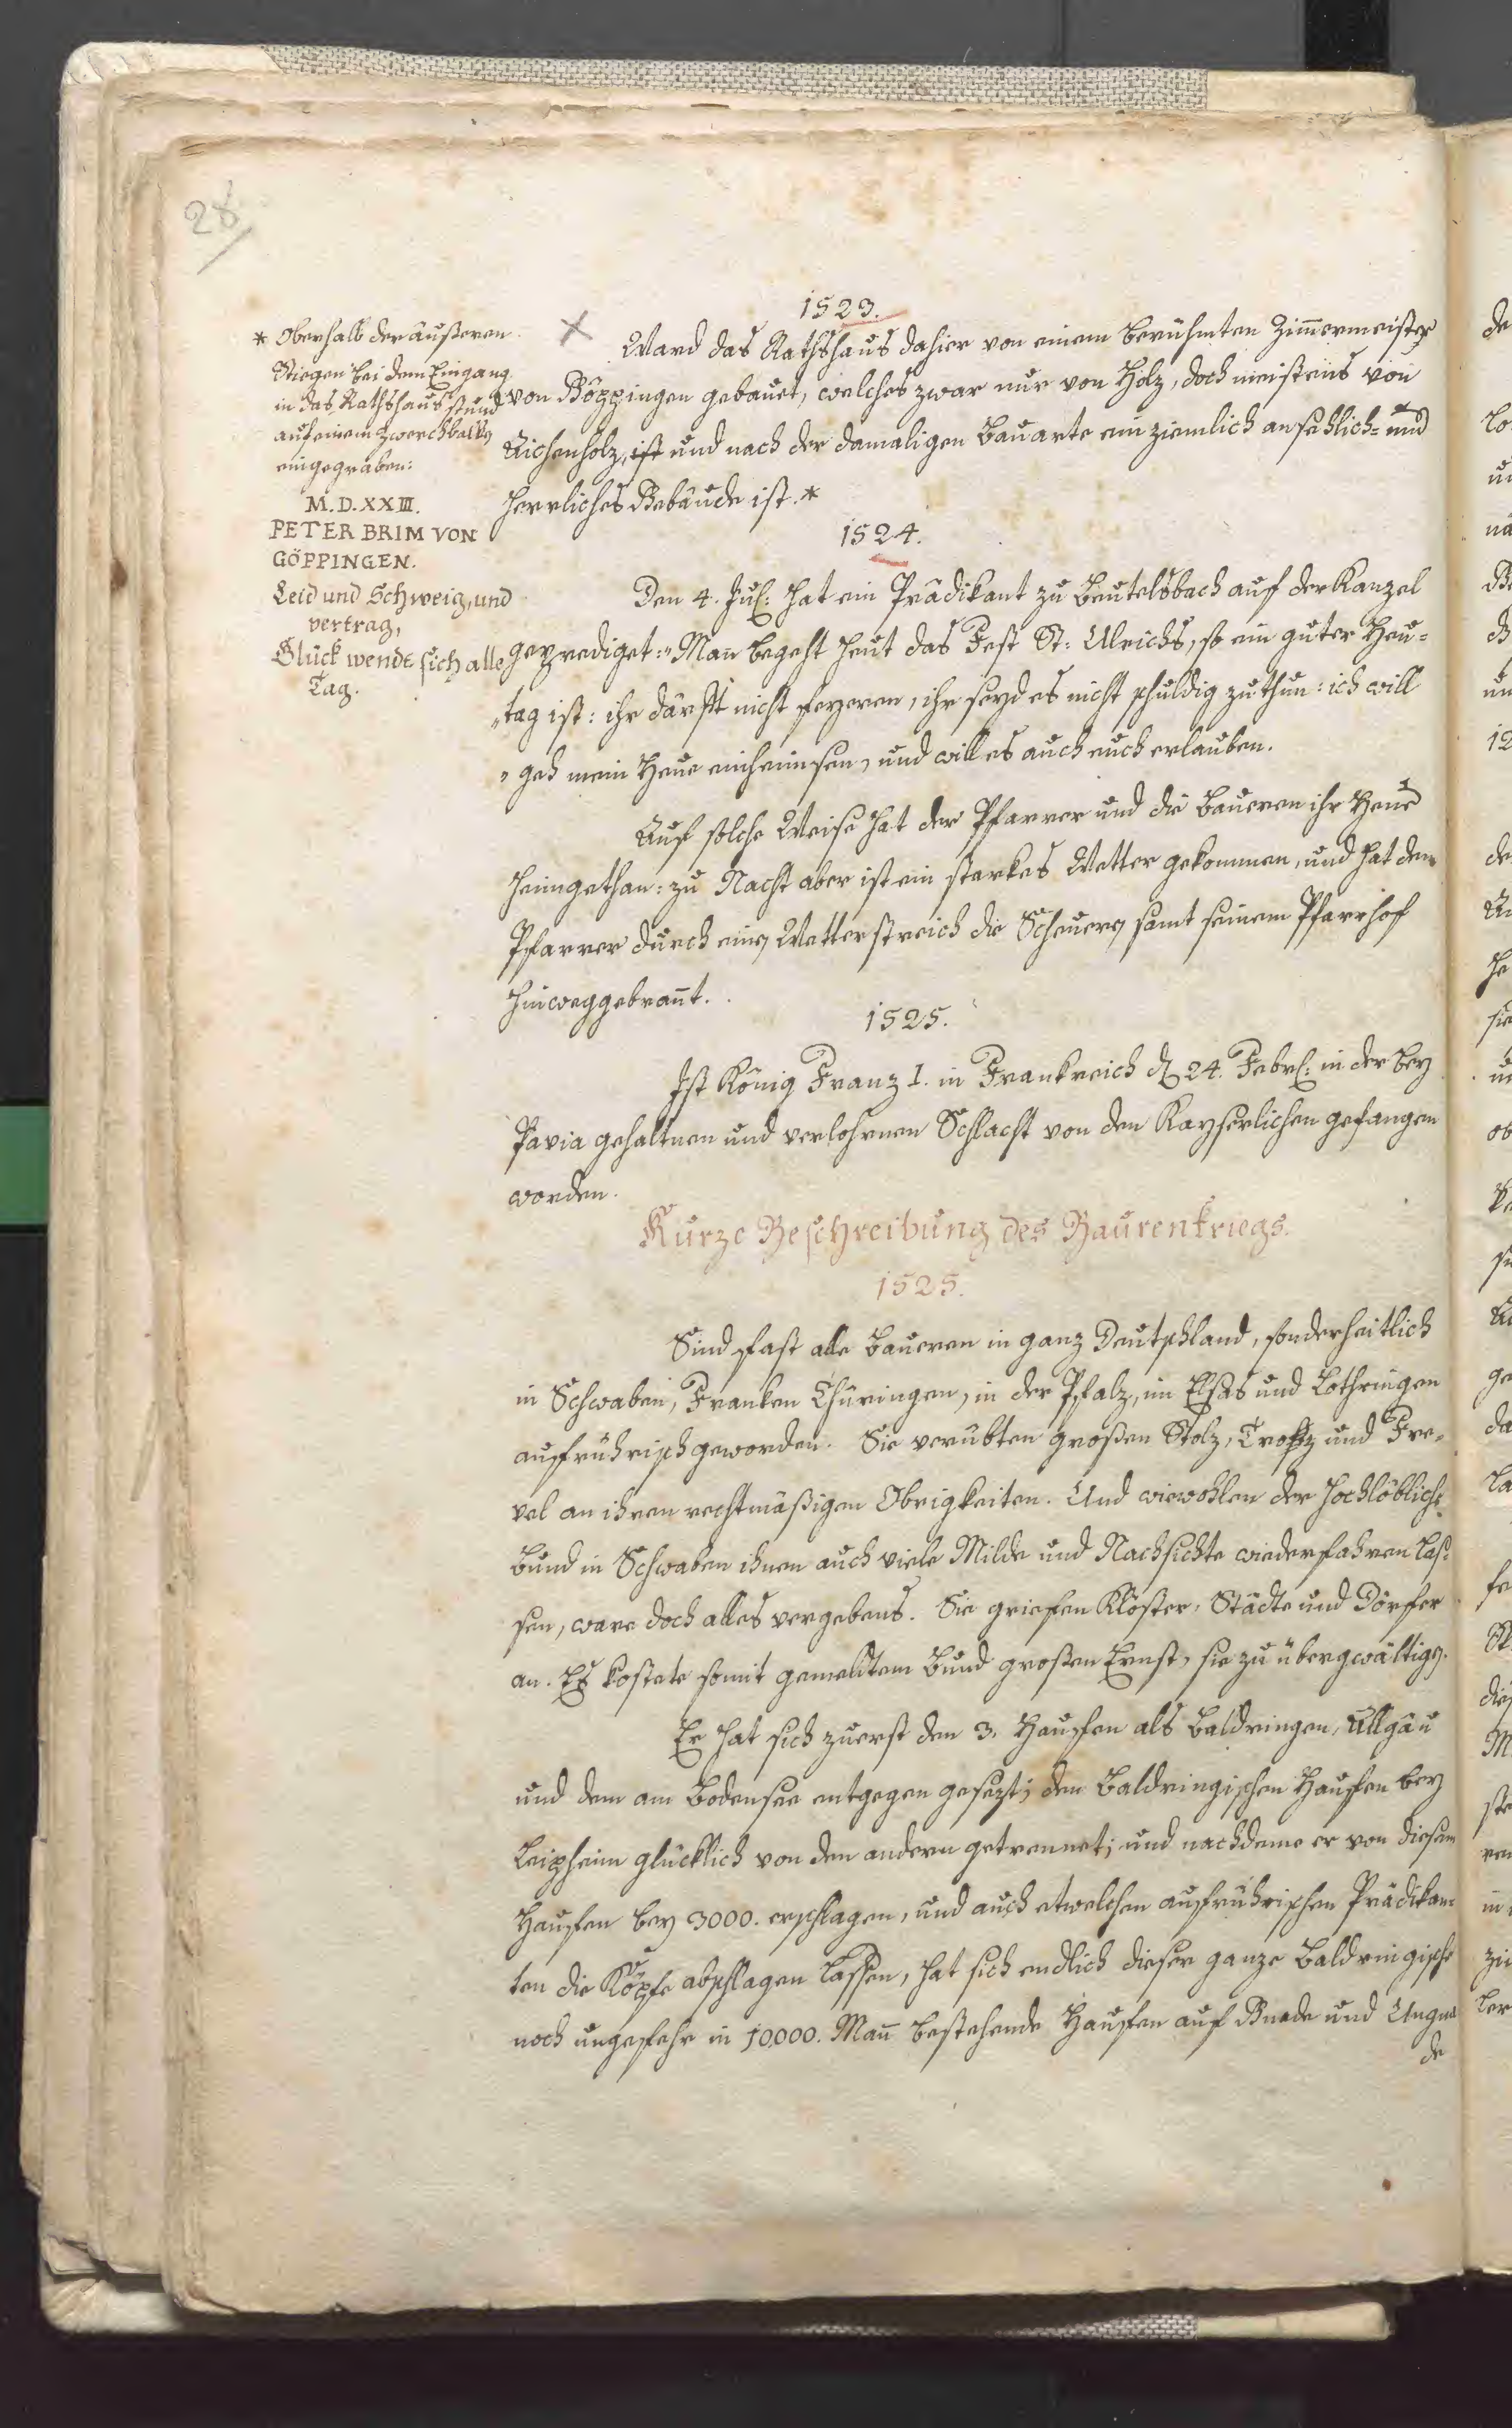 28
* Oberhalb der äußeren
Stiegen bei dem Eingang
in das Rathshaus stund
auf einem Zwerchbalken
eingegraben:
M.D.XXIII.
PETER BRIM VON
GÖPPINGEN.
Leid und Schweig, und
vertrag,
Glück wende sich alle
Tag.
1523.
Ward das Rathshaus dahier von einem berühmten Zimmermeister
von Göppingen gebauet, welches zwar nur von Holz, doch meistens von
Aichenholz, ist und nach der damaligen Bauarte ein ziemlich ansehlich- und
herrliches Gebäude ist.*
1524.
Den 4. Jul: hat ein Prädikant zu Beutelsbach auf der Kanzel
geprediget: „Man begeht heut das Fest St: Ulrichs, so ein guter Heu-
„tag ist: ihr därft nicht feyeren, ihr seyd es nicht schuldig zu thun: ich will
„geh mein Heue einheimsen, und will es auch euch erlauben.
Auf solche Weise hat der Pfarrer und die Baueren ihr Heue
heimgethan: zu Nacht aber ist ein starkes Wetter gekommen, und hat dem
Pfarrer durch einen Wetterstreich die Scheuern samt seinem Pfarrhof
hinweggebrannt.
1525.
Ist König Franz I. in Frankreich den 24. Febr: in der bey
Pavia gehaltnen und verlohrnen Schlacht von den Kayserlichen gefangen
worden.
Kurze Beschreibung des Baurenkriegs.
1525.
Sind fast alle Baueren in ganz Deutschland, sonderheitlich
in Schwaben, Franken Thüringen, in der Pfalz, im Elsas und Lothringen
aufrührisch geworden. Sie verübten großen Stolz, Trotz und Fre-
vel an ihren rechtmäßigen Obrigkeiten. Und wiewohlen der hochlöbliche
Bund in Schwaben ihnen auch viele Milde und Nachsichte wiederfahren las-
sen, ware doch alles vergebens. Sie griefen Klöster, Städte und Dörfer
an. Es kostete somit gemeldtem Bund großen Ernst, sie zu übergwältigen.
Er hat sich zuerst den 3. Hauffen als Baldringen, Allgäu
und dem am Bodensee entgegen gesezt; den Baldringischen Hauffen bey
Leipheim glücklich von den andern getrennet; und nachdeme er von diesem
Hauffen bey 3000. erschlagen, und auch etwelchen aufrührischen Prädikan-
ten die Köpfe abschlagen lassen, hat sich endlich dieser ganze Baldringische
noch ungefehr in 10000. Mann bestehende Hauffen auf Gnade und Ungna
de